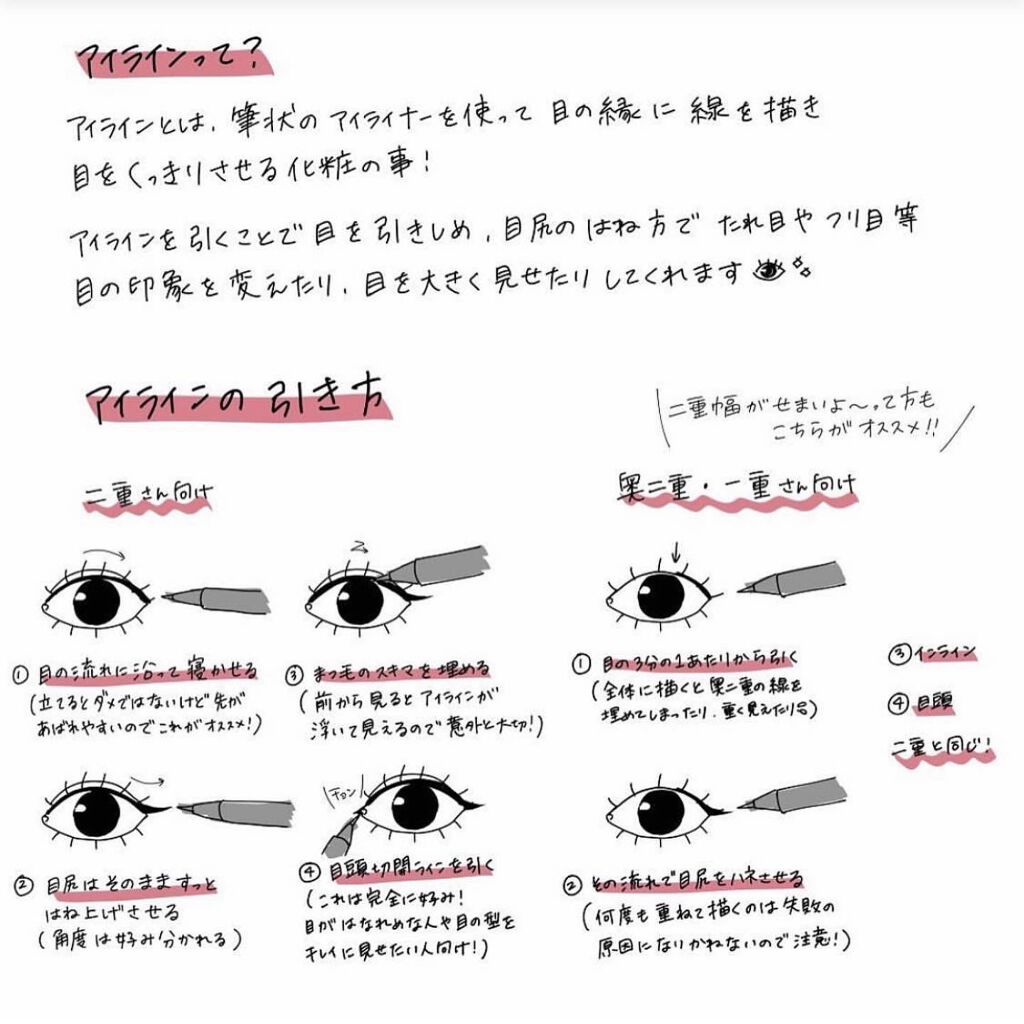 アイラインって?
アイラインとは、筆状のアイライナーを使って目の縁に線を描き
目をくっきりさせる化粧の事!
アイラインを引くことで目を引きしめ、目尻のはね方でたれ目やツリ目等
目の印象を変えたり、目を大きく見せたりしてくれます
アイラインの引き方
二重幅がせまいよ〜って方も
こちらがオススメ!!
二重さん向け
①目の流れに沿って寝かせる
(立てるとダメではないけど先が
あばれやすいのでこれがオススメ!)
②目尻はそのまますっと
はね上げさせる
(角度は好み分かれる)
③まつ毛のスキマを埋める
(前から見るとアイラインが
浮いて見えるので意外と大切!)
チョン
④目頭切開ラインを引く
(これは完全に好み!
目がはなれめな人や目の型を
キレイに見せたい人向け!)
奥二重・一重さん向け
①目の3分の1あたりから引く
(全体に描くと奥二重の線を
埋めてしまったり、重く見えたり)
②その流れで目尻をハネさせる
(何度も重ねて描くのは失敗の
原因になりかねないので注意!)
③インライン
④目頭
二重と同じ!